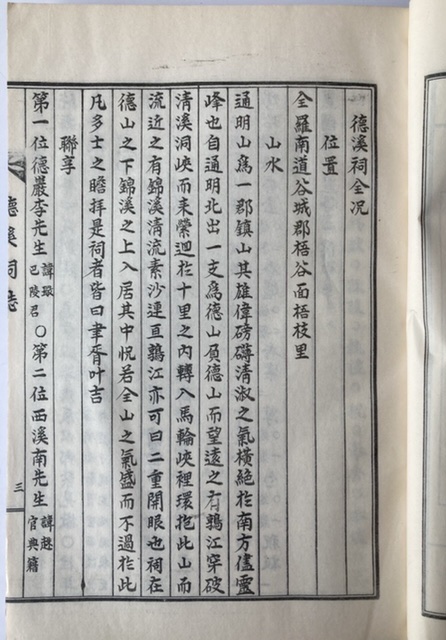 德溪祠全況
位置
全羅南道谷城郡梧谷面梧枝里
山水
通明山爲一郡鎮山其雄偉磅礴清淑之氣橫絶於南方儘靈
峰也自通明北出一支爲德山負德山而望遠之有鶉江穿破
清溪洞峽而来縈迴於十里之内轉入馬輪峽裡環抱此山而
流近之有錦溪清流素沙逕亘鶉江亦可曰二重開眼也祠在
德山之下錦溪之上入居其中怳若全山之氣盛而不過於此
凡多士之瞻拜是祠者皆曰聿胥叶吉
聯享
第一位德巖李先生諱
巴陵君〇第二位西溪南先生諱趎
官典籍
德溪祠誌
三